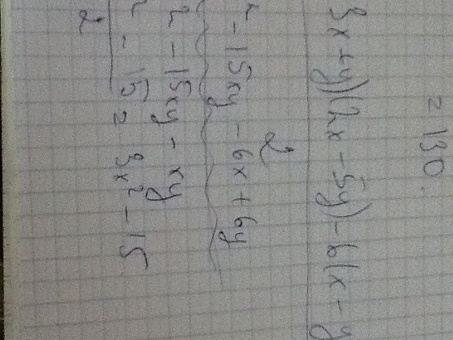 = 130.
3x + y)(2x - 5y) - 6(x - y
² - 15xy - 6x + 6y
2
² - 15xy - xy
² - 15 = 3x² - 15
2